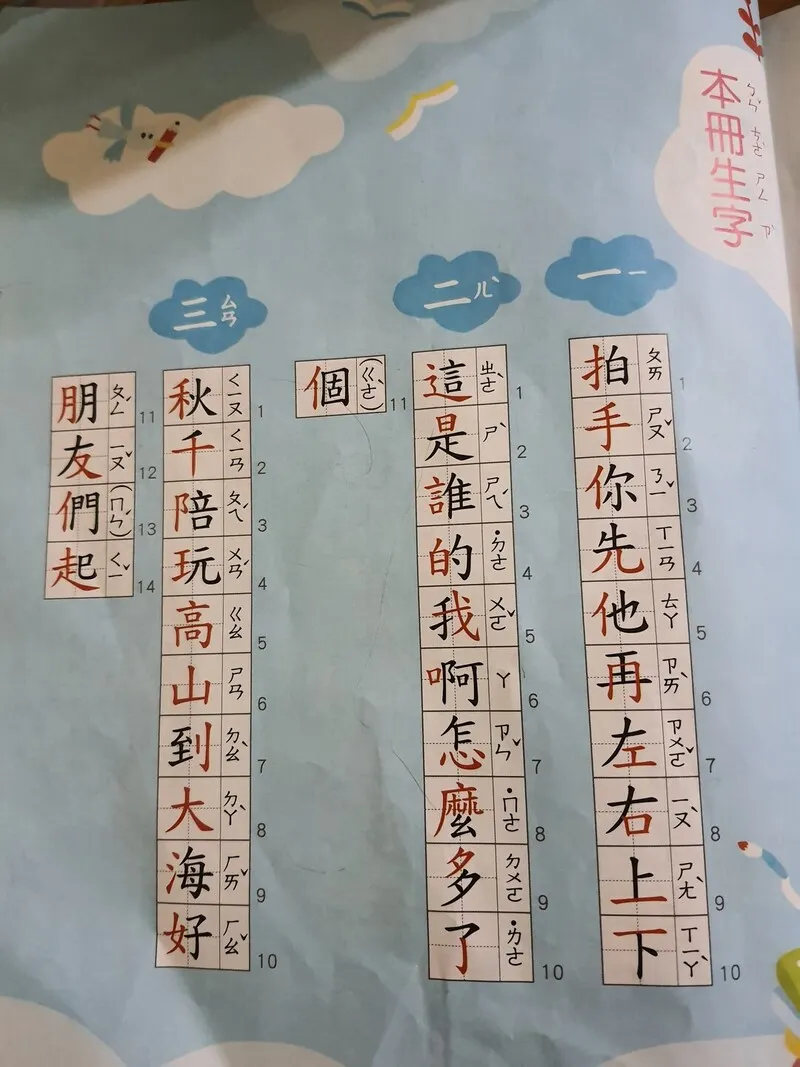 本冊生字 ㄅㄣˇ ㄘㄜˋ ㄕㄥ ㄗˋ
一 ㄧ
拍 ㄆㄞ 1
手 ㄕㄡˇ 2
你 ㄋㄧˇ 3
先 ㄒㄧㄢ 4
他 ㄊㄚ 5
再 ㄗㄞˋ 6
左 ㄗㄨㄛˇ 7
右 ㄧㄡˋ 8
上 ㄕㄤˋ 9
下 ㄒㄧㄚˋ 10
二 ㄦˋ
這 ㄓㄜˋ 1
是 ㄕˋ 2
誰 ㄕㄟˊ 3
的 ˙ㄉㄜ 4
我 ㄨㄛˇ 5
啊 ㄚ 6
怎 ㄗㄣˇ 7
麼 ˙ㄇㄜ 8
多 ㄉㄨㄛ 9
了 ˙ㄌㄜ 10
個 (ㄍㄜˋ) 11
三 ㄙㄢ
秋 ㄑㄧㄡ 1
千 ㄑㄧㄢ 2
陪 ㄆㄟˊ 3
玩 ㄨㄢˊ 4
高 ㄍㄠ 5
山 ㄕㄢ 6
到 ㄉㄠˋ 7
大 ㄉㄚˋ 8
海 ㄏㄞˇ 9
好 ㄏㄠˇ 10
朋 ㄆㄥˊ 11
友 ㄧㄡˇ 12
們 (ㄇㄣˊ) 13
起 ㄑㄧˇ 14